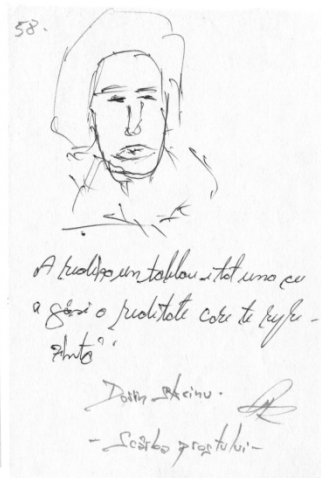 58.
A realiza un tablou e tot una cu
a găsi o realitate care te repre-
zintă".
Dorin
- Scârba prostului -